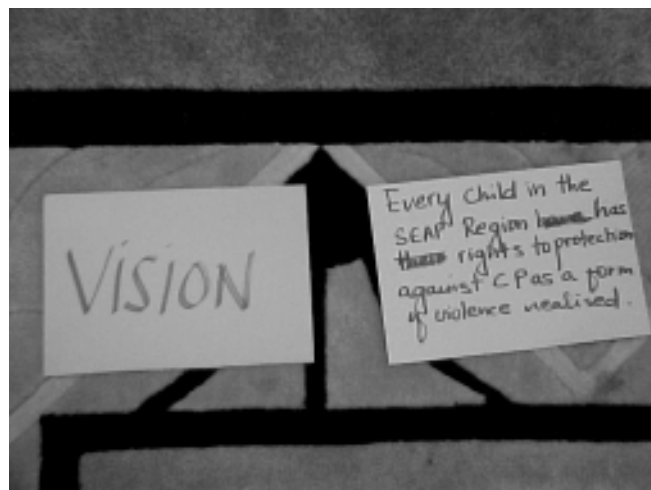 VISION
Every Child in the
SEAP Region has
rights to protection
against CP as a form
of violence realised.